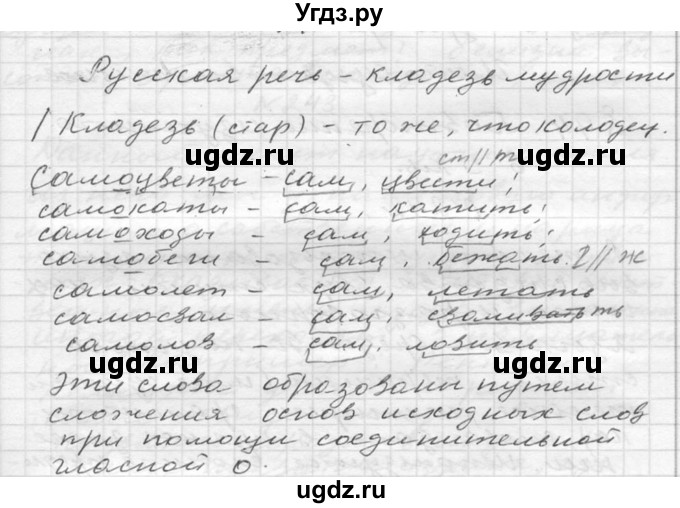 Угдз.ру
Русская речь – кладезь мудрости
/ Кладезь (стар) – то же, что колодец.
ugdz.ru ст//т ugdz.ru
самоцветы – сам, цвести;
самокаты – сам, катить;
самоходы – сам, ходить;
самобеги – сам, бежать. г//ж
самолет – сам, летать
самосвал – сам, сваливать
ugdz.ru ugdz.ru
самолов – сам, ловить
Эти слова образованы путем
сложения основ исходных слов
при помощи соединительной
гласной о.
ugdz.ru
ugdz.ru